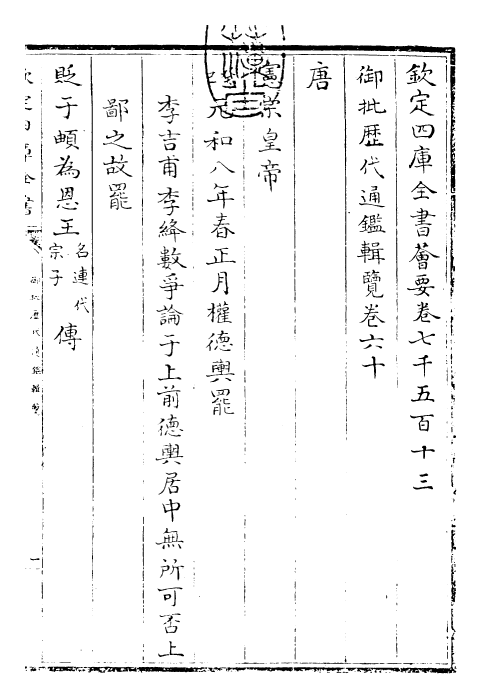 欽定四庫全書薈要卷七千五百十三
御批歷代通鑑輯覽卷六十
唐
憲宗皇帝
元和八年春正月權德輿罷
李吉甫李絳數爭論于上前德輿居中無所可否上
鄙之故罷
貶于頔為恩王名連代宗子傅
欽定四庫全書
御批歷代通鑑輯覽
一